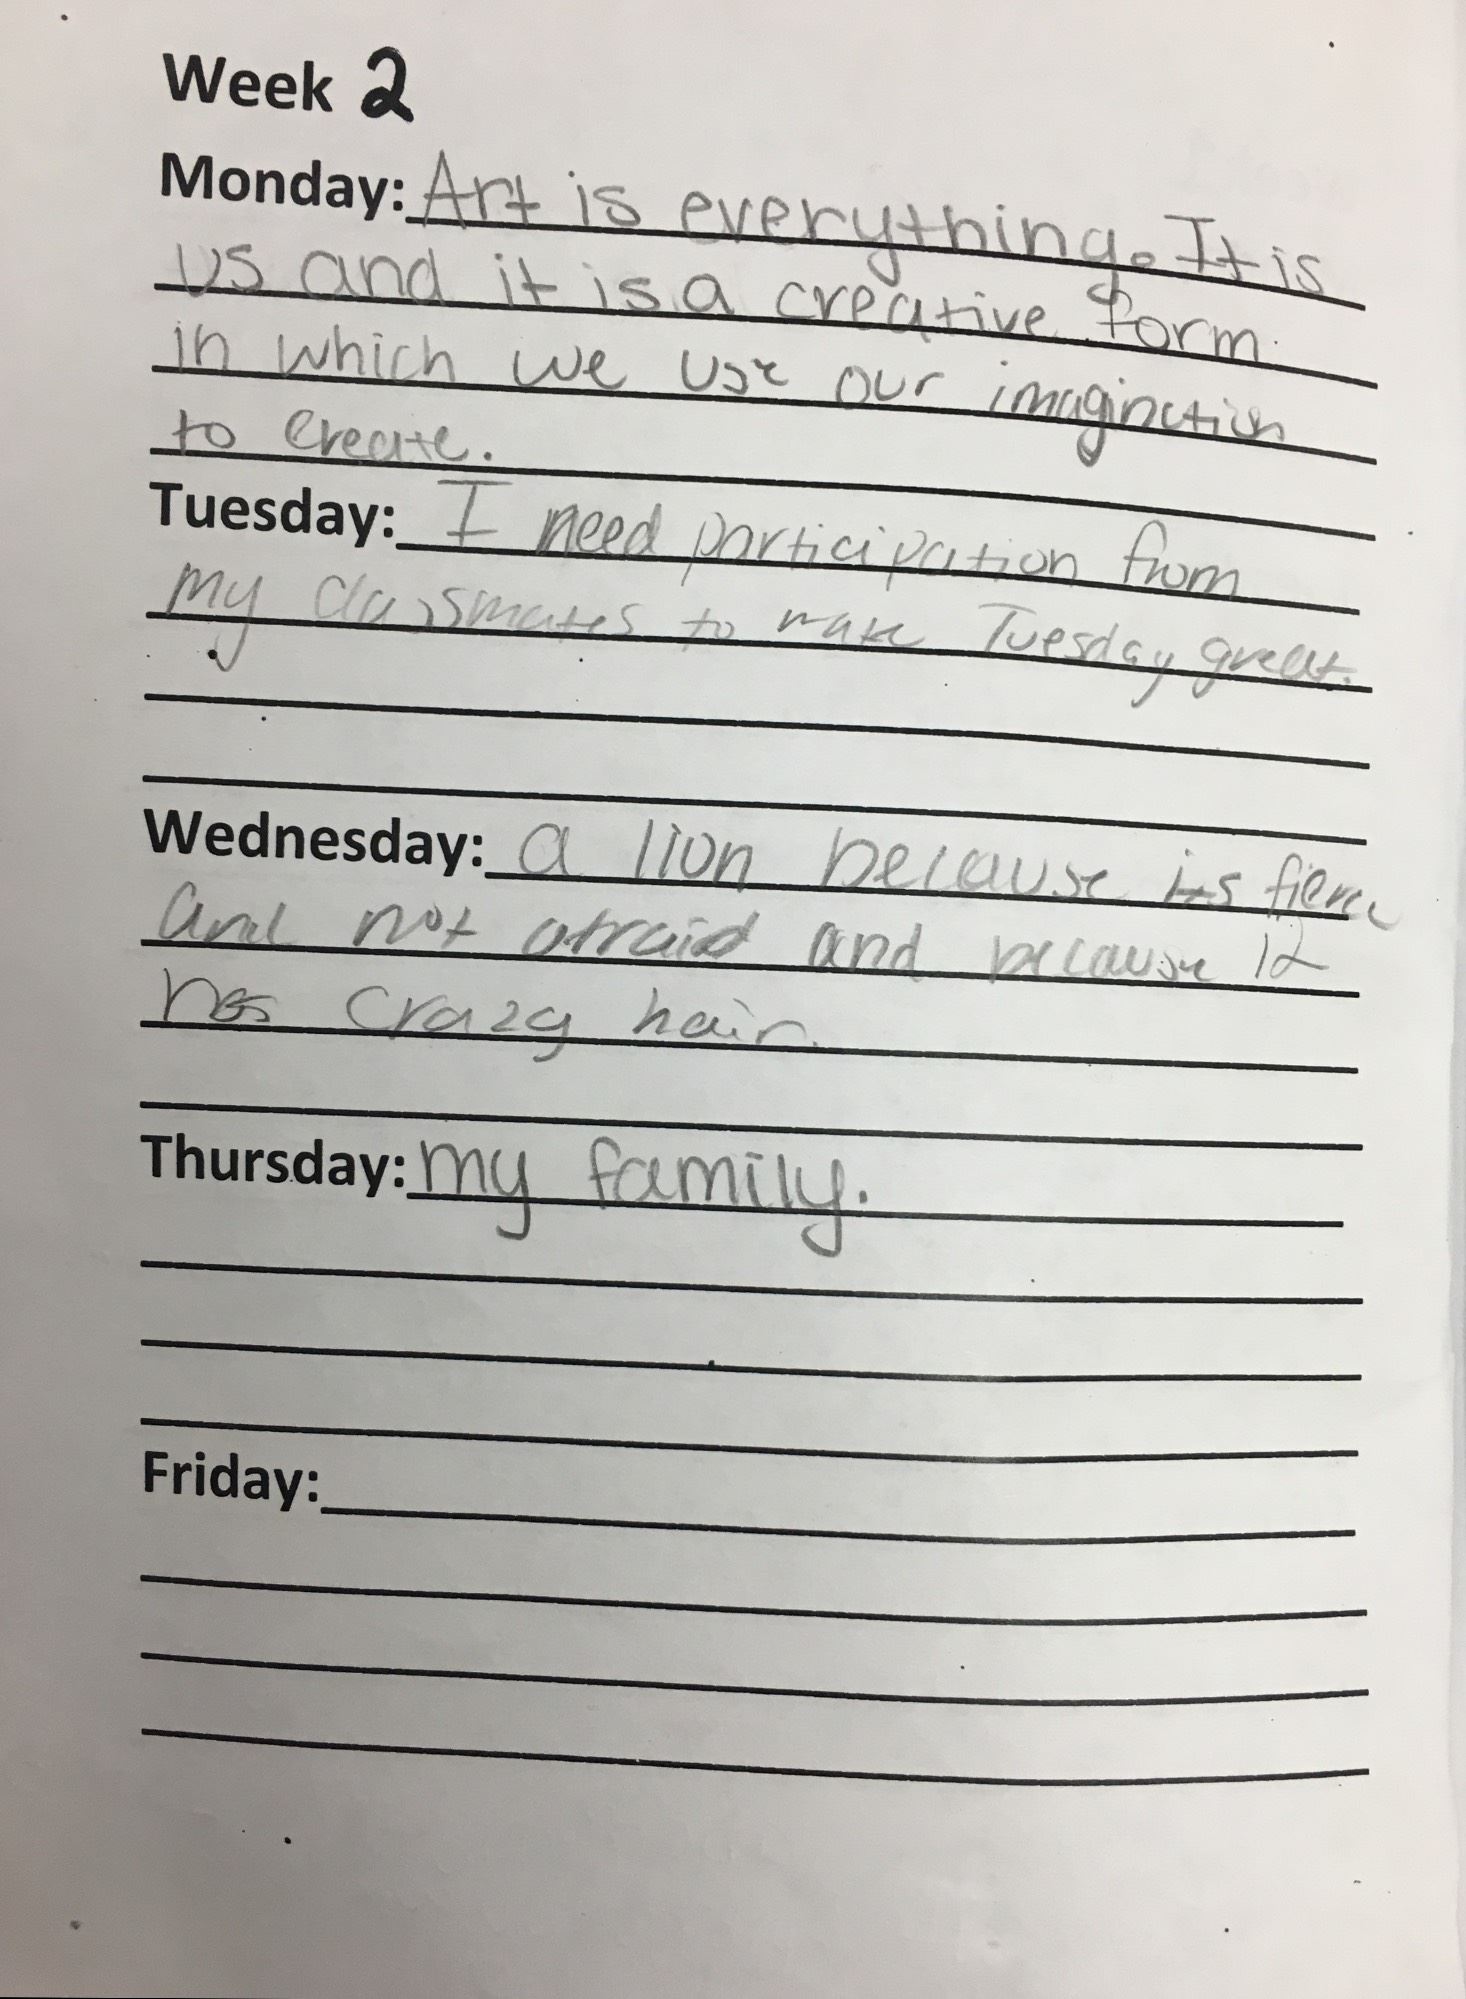 Week 2
Monday: Art is everything. It is
us and it is a creative form
in which we use our imagination
to create.
Tuesday: I need participation from
my classmates to make Tuesday great.
Wednesday: a lion because its fierce
and not afraid and because it
has crazy hair.
Thursday: my family.
Friday: